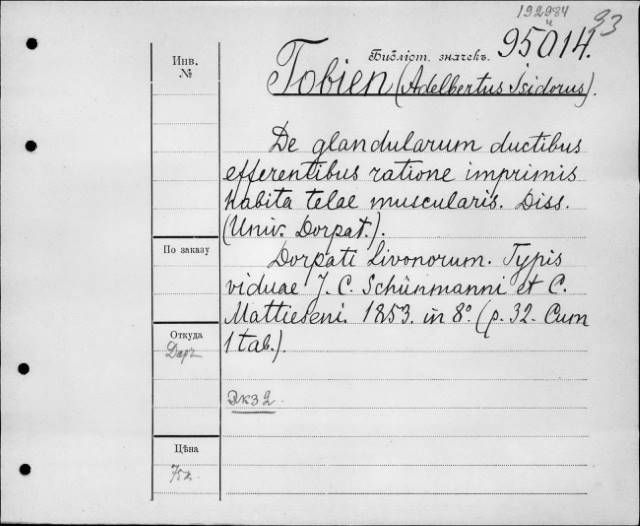 192984
ч
93
Инв.
№
Библіот. значекъ. 95014.
Tobien (Adelbertus Isidorus).
De glandularum ductibus
efferentibus ratione imprimis
habita telae muscularis. Diss.
(Univ. Dorpat.).
По заказу
Dorpati Livonorum. Typis
viduae J. C. Schünmanni et C.
Mattieseni. 1853. in 8º. (p. 32. Cum
1 tab.).
Откуда
Даръ
Экз 2
Цѣна